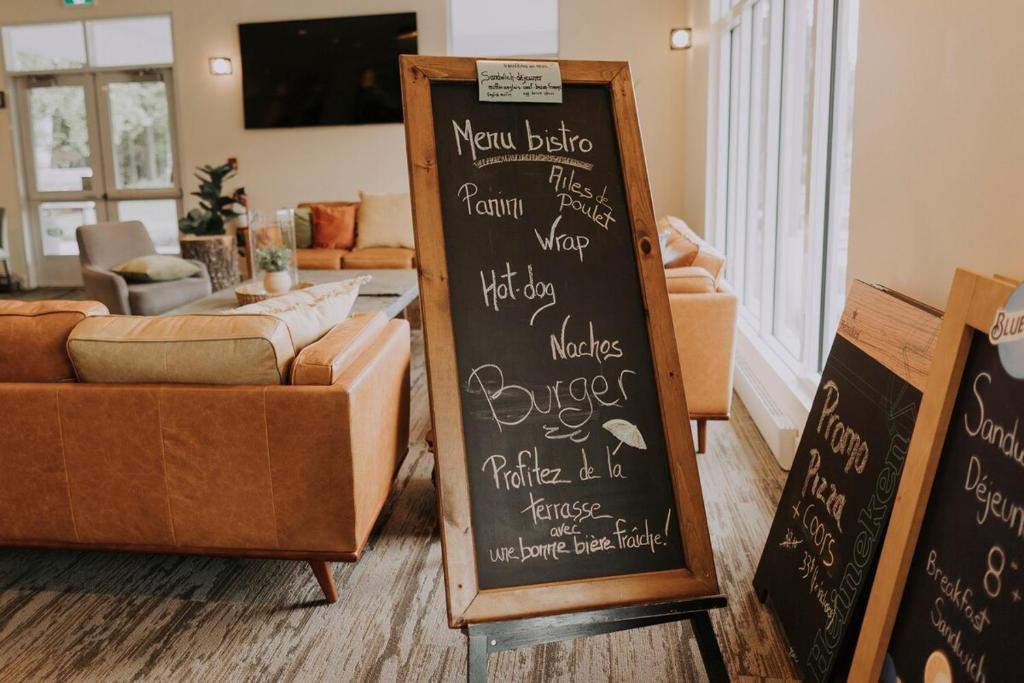 Sandwich déjeuner
Menu bistro
Ailes de
Poulet
Panini
Wrap
Hot-dog
Nachos
Burger
Profitez de la
terrasse
avec
une bonne bière fraîche!
Promo
Pizza
+ Coors
Heineken
BLUE
Sandw
Déjeun
8
Breakfast
Sandwich